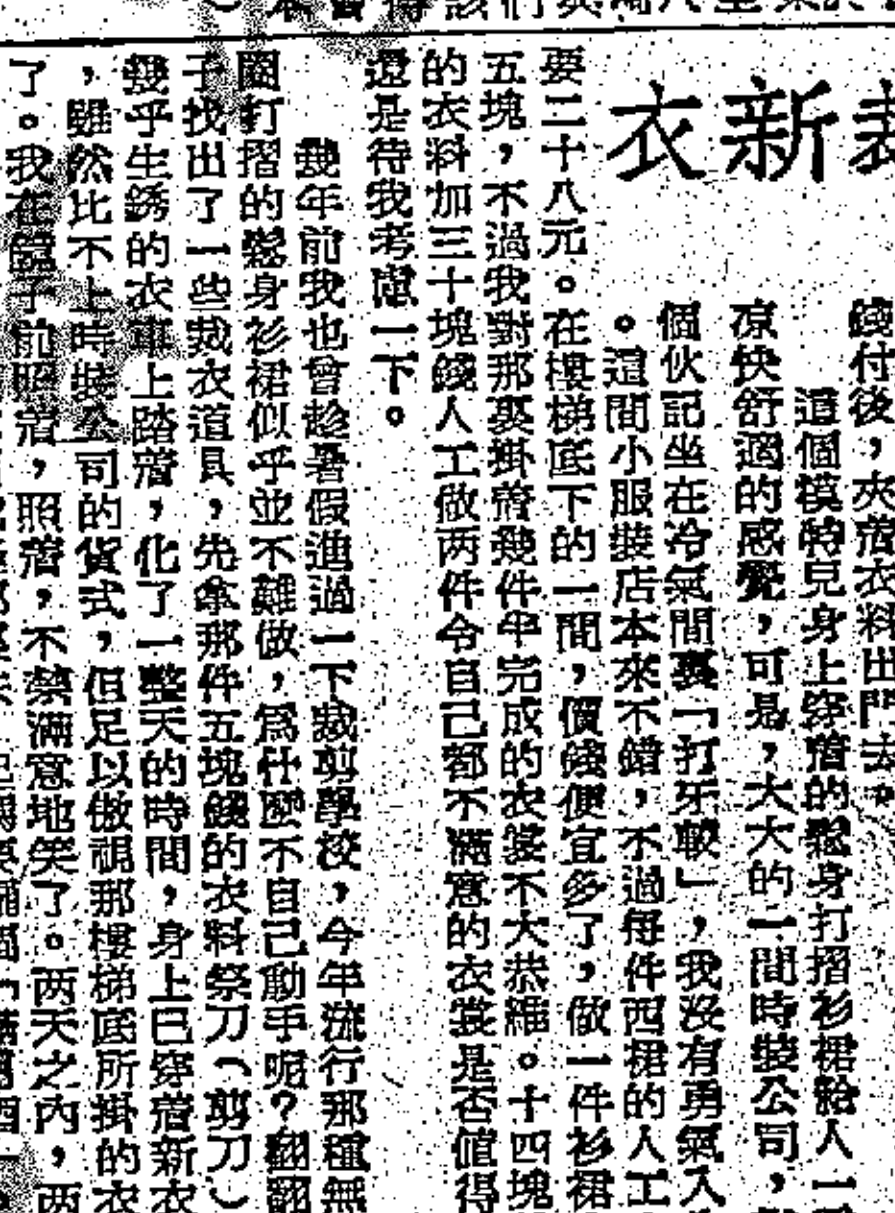 新衣
錢付後，夾着衣料出門去。
這個模特兒身上穿着的鬆身打摺衫裙給人一
凉快舒適的感覺，可是，大大的一間時裝公司，
個伙記坐在冷氣間裏「打牙較」，我沒有勇氣入
。這間小服裝店本來不錯，不過每件西裙的人工
要二十八元。在樓梯底下的一間，價錢便宜多了，做一件衫裙
五塊，不過我對那裏掛着幾件半完成的衣裳不大恭維。十四塊
的衣料加三十塊錢人工做两件令自己都不滿意的衣裳是否值得
還是待我考慮一下。
幾年前我也曾趁暑假進過一下裁剪學校，今年流行那種無
圈打摺的鬆身衫裙似乎並不難做，爲什麽不自己動手呢？翻翻
子找出了一些裁衣道具，先拿那件五塊錢的衣料祭刀（剪刀）
幾乎生銹的衣車上踏着，化了一整天的時間，身上已穿着新衣
，雖然比不上時裝公司的貨式，但足以傲視那樓梯底所掛的衣
了。我在鏡子前照着，照着，不禁滿意地笑了。两天之內，两